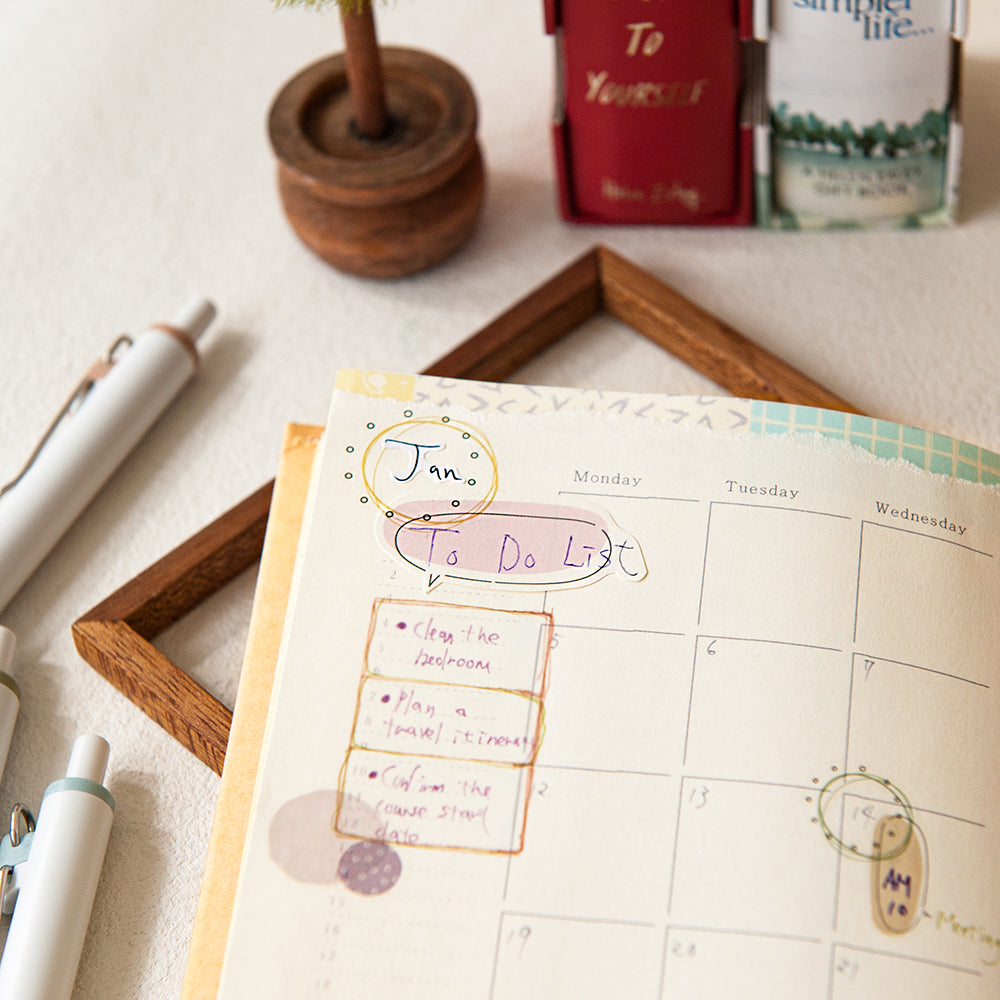 To
YOURSELF
simpler
life...
GIFT BOOK
Jan
To Do List
Monday
Tuesday
Wednesday
2
4
5
6
7
8
10
• Clean the
bedroom
• Plan a
travel itinerary
• Confirm the
course start
date
15
16
17
18
5
6
7
2
13
14
AM
10
Meeting
19
20
21